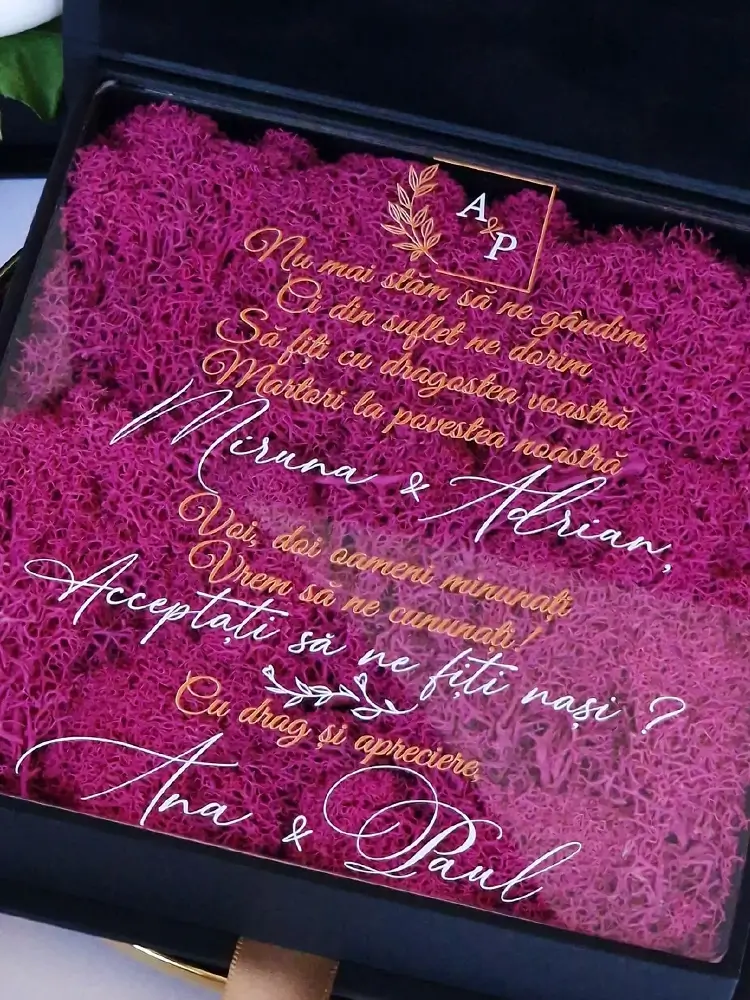 A & P
Nu mai stăm să ne gândim,
Ci din suflet ne dorim
Să fiți cu dragostea voastră
Martori la povestea noastră
Miruna & Adrian,
Voi, doi oameni minunați
Vrem să ne cununați!
Acceptați să ne fiți nași ?
Cu drag și apreciere,
Ana & Paul